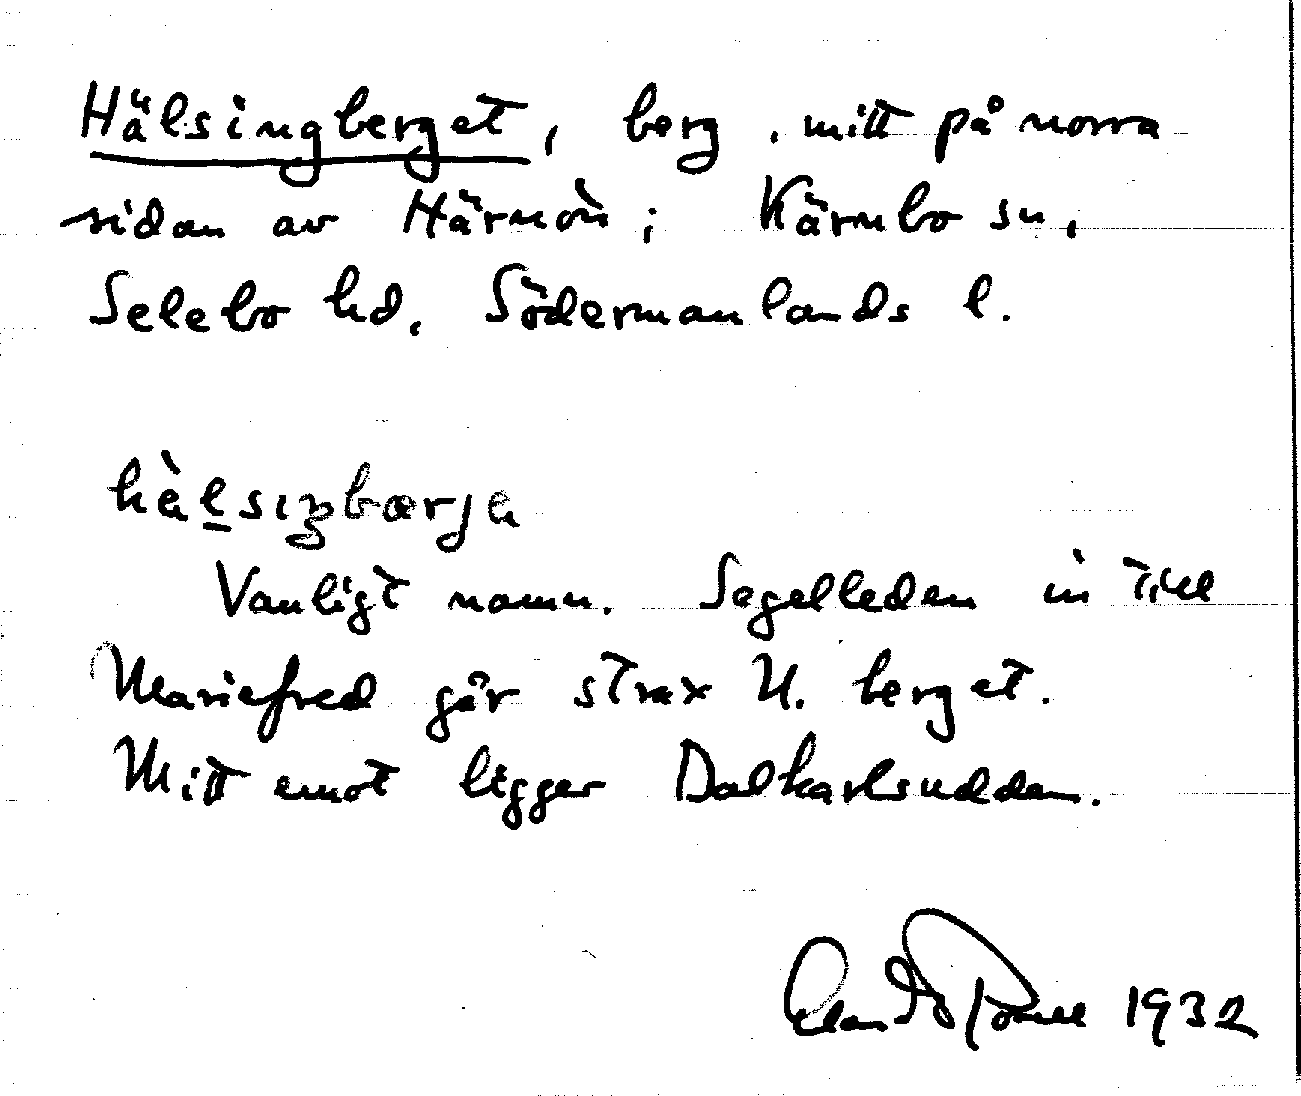 Hälsingberget, berg, mitt på norra
sidan av Härnön; Kärnbo sn,
Selebo hd, Södermanlands l.
hàlsiŋbærjɑ
Vanligt namn. Segelleden in till
Mariefred går strax N. berget.
Mitt emot ligger Dalkarlsudden.
1932